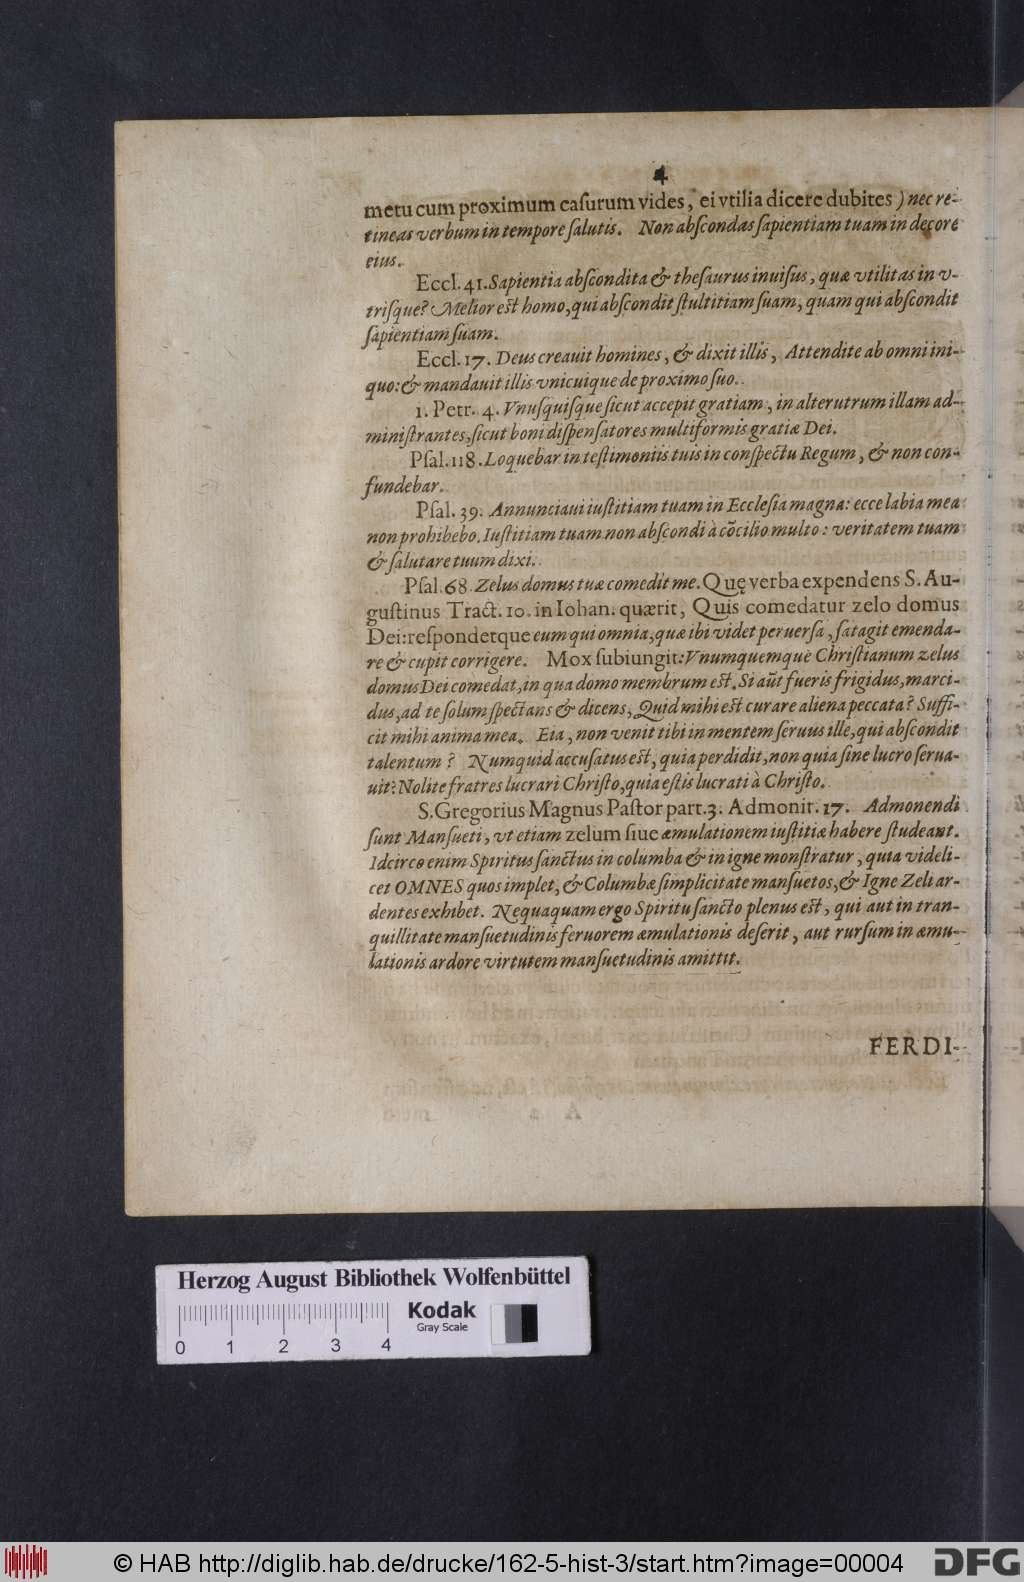 4
metu cum proximum caſurum vides, ei vtilia dicere dubites) nec re-
tineas verbum in tempore ſalutis. Non abſcondas ſapientiam tuam in decore
eius.
Eccl. 41. Sapientia abſcondita & theſaurus inuiſus, quæ vtilitas in v-
triſque? Melior eſt homo, qui abſcondit ſtultitiam ſuam, quam qui abſcondit
ſapientiam ſuam.
Eccl. 17. Deus creauit homines, & dixit illis, Attendite ab omni ini-
quo: & mandauit illis vnicuique de proximo ſuo.
1. Petr. 4. Vnuſquiſque ſicut accepit gratiam, in alterutrum illam ad-
miniſtrantes, ſicut boni diſpenſatores multiformis gratiæ Dei.
Pſal. 118. Loquebar in teſtimoniis tuis in conſpectu Regum, & non con-
fundebar.
Pſal. 39. Annunciaui iuſtitiam tuam in Eccleſia magna: ecce labia mea
non prohibebo. Iuſtitiam tuam non abſcondi à cõcilio multo: veritatem tuam
& ſalutare tuum dixi.
Pſal. 68. Zelus domus tuæ comedit me. Quę verba expendens S. Au-
guſtinus Tract. 10. in Iohan. quærit, Quis comedatur zelo domus
Dei: reſpondetque eum qui omnia, quæ ibi videt peruerſa, ſatagit emenda-
re & cupit corrigere. Mox ſubiungit: Vnumquemque Chriſtianum zelus
domus Dei comedat, in qua domo membrum eſt. Si aũt fueris frigidus, marci-
dus, ad te ſolum ſpectans & dicens, Quid mihi eſt curare aliena peccata? Suffi-
cit mihi anima mea. Eia, non venit tibi in mentem ſeruus ille, qui abſcondit
talentum? Numquid accuſatus eſt, quia perdidit, non quia ſine lucro ſerua-
uit? Nolite fratres lucrari Chriſto, quia eſtis lucrati à Chriſto.
S. Gregorius Magnus Paſtor part. 3. Admonit. 17. Admonendi
ſunt Manſueti, vt etiam zelum ſiue æmulationem iuſtitiæ habere ſtudeant.
Idcirco enim Spiritus ſanctus in columba & in igne monſtratur, quia videli-
cet OMNES quos implet, & Columbæ ſimplicitate manſuetos, & Igne Zeli ar-
dentes exhibet. Nequaquam ergo Spiritu ſancto plenus eſt, qui aut in tran-
quillitate manſuetudinis feruorem æmulationis deſerit, aut rurſum in æmu-
lationis ardore virtutem manſuetudinis amittit.
FERDI-
Herzog August Bibliothek Wolfenbüttel
Kodak
Gray Scale
0 1 2 3 4
© HAB http://diglib.hab.de/drucke/162-5-hist-3/start.htm?image=00004
DFG